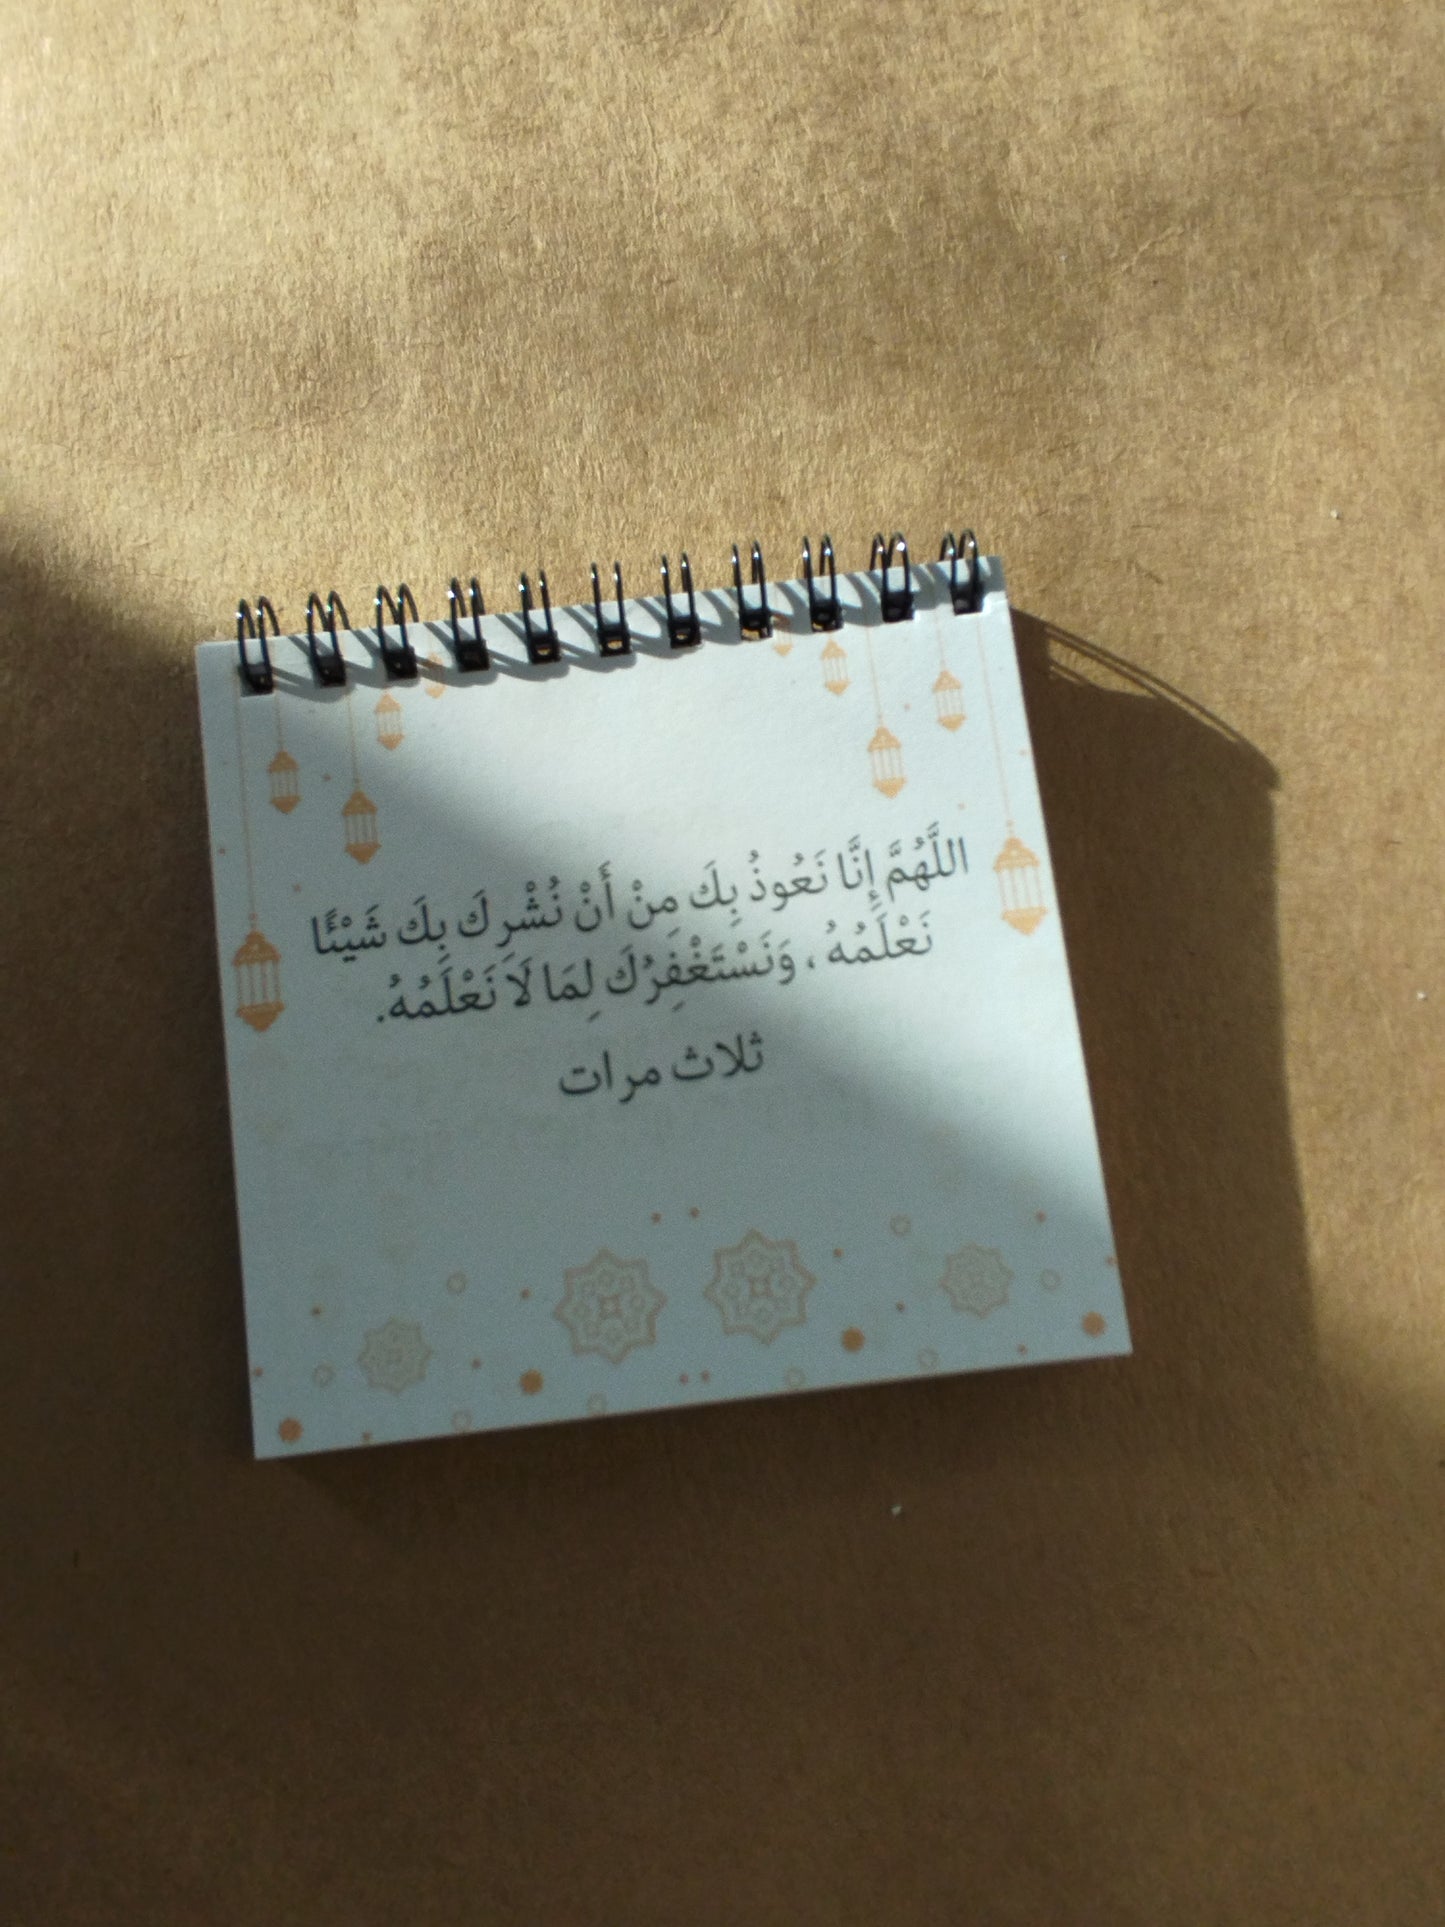 اللَّهُمَّ إِنَّا نَعُوذُ بِكَ مِنْ أَنْ نُشْرِكَ بِكَ شَيْئًا
نَعْلَمُهُ ، وَنَسْتَغْفِرُكَ لِمَا لَا نَعْلَمُهُ.
ثلاث مرات